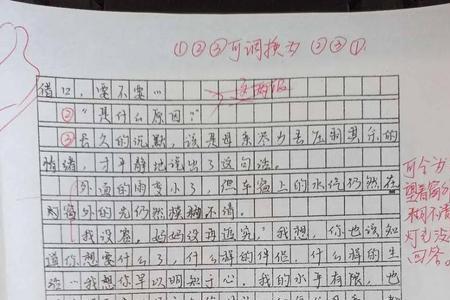 ①②③可调换为②③①
借口，要不要…
②“是什么原因？”
③长久的沉默，该是母亲尽力去压制哀乐的
情绪，才平静地说出了这句话。
外面的雨变小了，但车窗上的水汽仍然在
窗外的光仍然模糊不清。
“我没赛。妈妈没再追究。”我想，“你也该知
道你想要什么了，什么样的伴侣，什么样的生
活…我想你早以明知于心。我的水平有限，也
可合为
望着窗外
模不清
灯
回答。